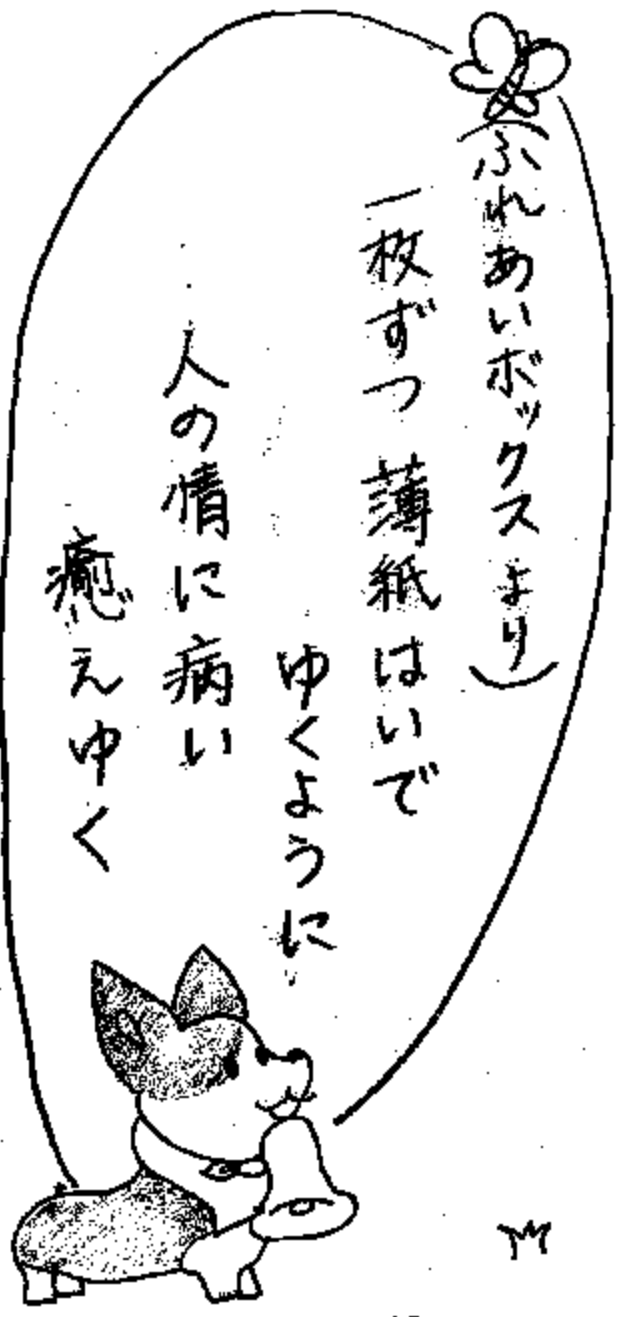 (ふれあいボックスより)
一枚ずつ薄紙はいで
ゆくように
人の情に病い
癒えゆく